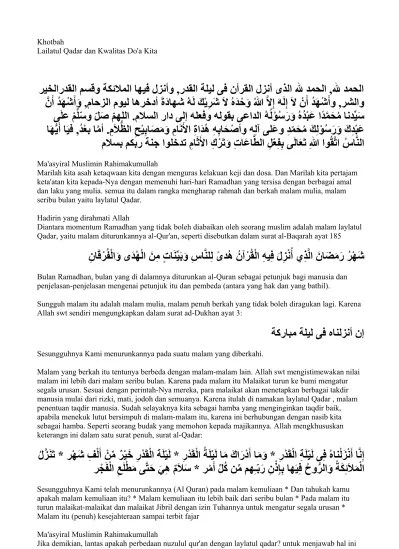 Khotbah
Lailatul Qadar dan Kwalitas Do'a Kita
الحمد لله، الحمد لله الذى أنزل القرآن فى ليلة القدر, وأنزل فيها الملائكة وقسم القدرالخير
والشر, وأَشْهَدُ أَنْ لاَ إِلَهَ إِلاَّ اللهُ وَحْدَهُ لاَ شَرِيْكَ لَهُ شَهَادَةً أدخرها ليوم الزحام, وَأَشْهَدُ أَنَّ
سَيِّدَنا مُحَمَّدًا عَبْدُهُ وَرَسُوْلُهُ الداعى بقوله وفعله إلى دار السلام. اللهمّ صَلِّ وسَلِّمْ علَى
عَبْدِكَ وَرَسُوْلِكَ مُحَمَّدٍ وعَلَى آلِه وأصْحَابِهِ هُدَاةِ الأَنَامِ وَمَصَابِيْحِ الظُّلاَمِ. أمَّا بعْدُ، فيَا أيُّهَا
النَّاسُ اتَّقُوا اللهَ تعَالَى بِفِعْلِ الطَّاعَاتِ وَتَرْكِ الأثَامِ تدخلوا جنة ربكم بسلام
Ma'asyiral Muslimin Rahimakumullah
Marilah kita asah ketaqwaan kita dengan menguras kelakuan keji dan dosa. Dan Marilah kita pertajam
keta'atan kita kepada-Nya dengan memenuhi hari-hari Ramadhan yang tersisa dengan berbagai amal
dan laku yang mulia. semua itu dalam rangka mengharap rahmah dan berkah malam mulia, malam
seribu bulan yaitu lalaytul Qadar.
Hadirin yang dirahmati Allah
Diantara momentum Ramadhan yang tidak boleh diabaikan oleh seorang muslim adalah malam lalaytul
Qadar, yaitu malam diturunkannya al-Qur'an, seperti disebutkan dalam surat al-Baqarah ayat 185
شَهْرُ رَمَضَانَ الَّذِي أُنْزِلَ فِيهِ الْقُرْآنُ هُدىً لِلنَّاسِ وَبَيِّنَاتٍ مِنَ الْهُدَى وَالْفُرْقَانِ
Bulan Ramadhan, bulan yang di dalamnya diturunkan al-Quran sebagai petunjuk bagi manusia dan
penjelasan-penjelasan mengenai petunjuk itu dan pembeda (antara yang hak dan yang bathil).
Sungguh malam itu adalah malam mulia, malam penuh berkah yang tidak boleh diragukan lagi. Karena
Allah swt sendiri mengungkapkan dalam surat ad-Dukhan ayat 3:
إن أنزلناه فى ليلة مباركة
Sesungguhnya Kami menurunkannya pada suatu malam yang diberkahi.
Malam yang berkah itu tentunya berbeda dengan malam-malam lain. Allah swt mengistimewakan nilai
malam ini lebih dari malam seribu bulan. Karena pada malam itu Malaikat turun ke bumi mengatur
segala urusan. Sesuai dengan perintah-Nya mereka, para malaikat akan menetapkan berbagai takdir
manusia mulai dari rizki, mati, jodoh dan semuanya. Karena itulah di namakan laylatul Qadar , malam
penentuan taqdir manusia. Sudah selayaknya kita sebagai hamba yang menginginkan taqdir baik,
apabila menekuk lutut bersimpuh di malam-malam itu, karena ini berhubungan dengan nasib kita
sebagai hamba. Seperti seorang budak yang memohon kepada majikannya. Allah mengkhususkan
keterangn ini dalam satu surat penuh, surat al-Qadar:
إِنَّا أَنْزَلْنَاهُ فِي لَيْلَةِ الْقَدْرِ * وَمَا أَدْرَاكَ مَا لَيْلَةُ الْقَدْرِ * لَيْلَةُ الْقَدْرِ خَيْرٌ مِّنْ أَلْفِ شَهْرٍ * تَنَزَّلُ
الْمَلَائِكَةُ وَالرُّوحُ فِيهَا بِإِذْنِ رَبِّهِم مِّن كُلِّ أَمْرٍ * سَلَامٌ هِيَ حَتَّى مَطْلَعِ الْفَجْرِ
Sesungguhnya Kami telah menurunkannya (Al Quran) pada malam kemuliaan * Dan tahukah kamu
apakah malam kemuliaan itu? * Malam kemuliaan itu lebih baik dari seribu bulan * Pada malam itu
turun malaikat-malaikat dan malaikat Jibril dengan izin Tuhannya untuk mengatur segala urusan *
Malam itu (penuh) kesejahteraan sampai terbit fajar
Ma'asyiral Muslimin Rahimakumullah
Jika demikian, lantas apakah perbedaan nuzulul qur'an dengan laylatul qadar? untuk menjawab hal ini